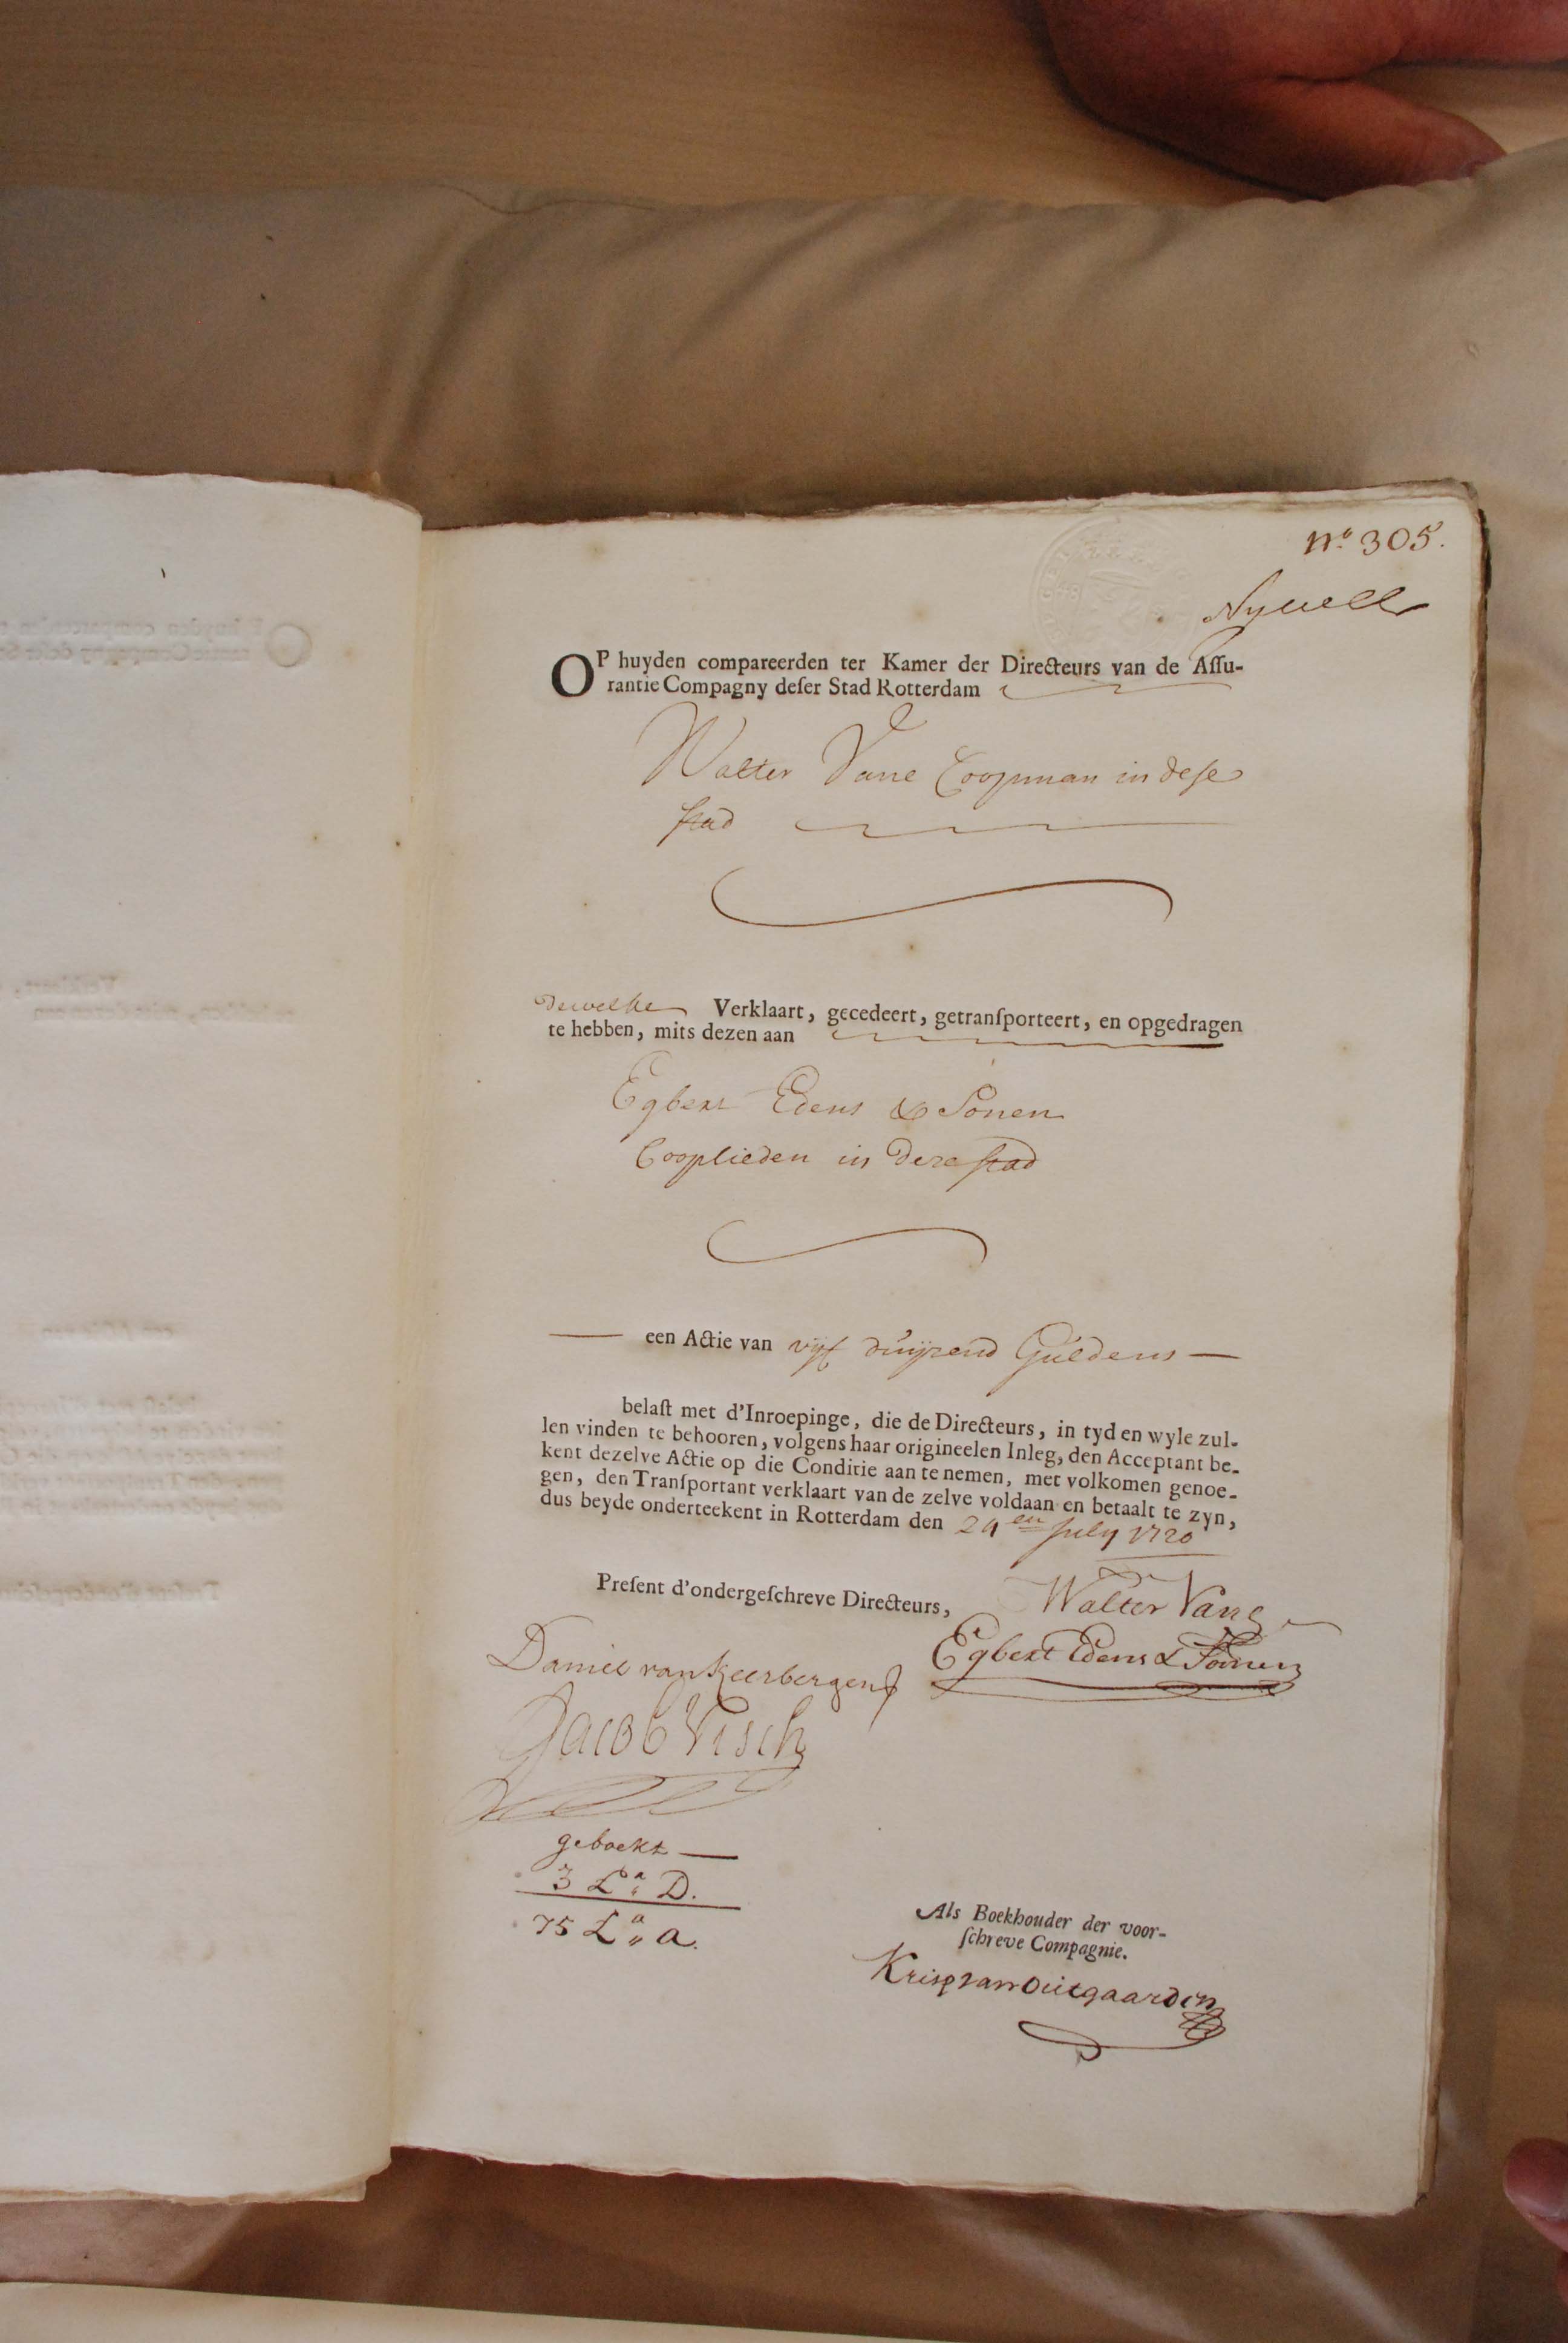 nº 305.
Nyvelt
OP huyden compareerden ter Kamer der Directeurs van de Aſſu-
rantie Compagny deſer Stad Rotterdam
Walter Vane Coopman in deſe
ſtad
dewelke Verklaart, gecedeert, getranſporteert, en opgedragen
te hebben, mits dezen aan
Egbert Edens & Sonen
Cooplieden in deze ſtad
een Actie van vyf duyzend Guldens
belaſt met d'Inroepinge, die de Directeurs, in tyd en wyle zul-
len vinden te behooren, volgens haar origineelen Inleg, den Acceptant be-
kent dezelve Actie op die Conditie aan te nemen, met volkomen genoe-
gen, den Tranſportant verklaart van de zelve voldaan en betaalt te zyn,
dus beyde onderteekent in Rotterdam den 24en July 1720
Preſent d'ondergeſchreve Directeurs,
Walter Vane
Daniel van Keerbergen
Egbert Edens & Soonen
Jacob Visch
geboekt
3 La D.
75 La a.
Als Boekhouder der voor-
ſchreve Compagnie.
Krisp van Outgaarden